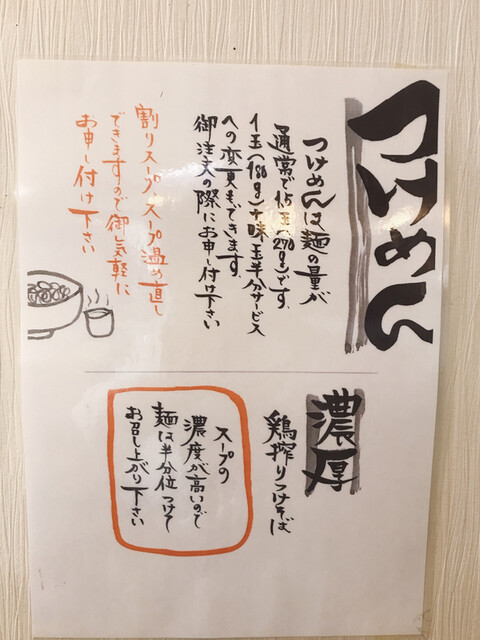 つけめん
つけめんは麺の量が
通常で1.5玉(270g)です。
1玉(180g)+味玉半分サービス
への変更もできます。
御注文の際にお申し付け下さい
割りスープ、スープ温め直し
できますので御気軽に
お申し付け下さい
濃厚
鶏搾りつけそば
スープの
濃度が高いので
麺は半分位つけて
お召し上がり下さい